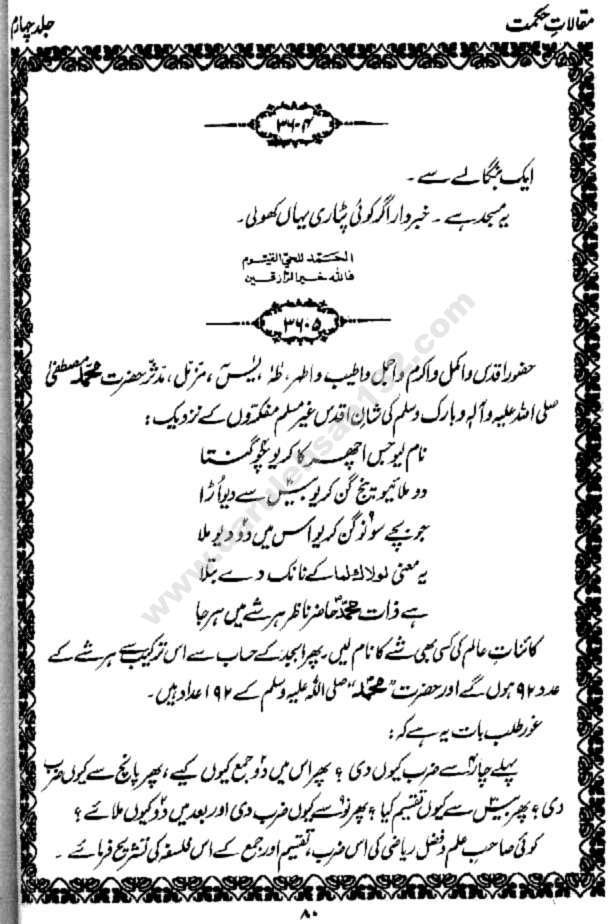 مقالاتِ حکمت
جلد چہارم
۳۶۰۴
ایک بنگالے سے ۔
یہ مسجد ہے ۔ خبردار اگر کوئی پٹاری یہاں کھولی۔
الحمد للحی القیوم
فاللہ خیر الرازقین
۳۶۰۵
حضورِ اقدس و اکمل و اکرم و اجمل و اطیب و اطہر، طٰہٰ، یٰسٓ، مزّمّل، مدّثّر حضرت محمد مصطفیٰ
صلی اللہ علیہ و آلہٖ و بارک وسلم کی شانِ اقدس غیر مسلم مفکّروں کے نزدیک :
نام لیو جس اچھر کا کریو چوگنتا
دو ملائیو پنج گن کریو بیس سے دیو اُڑا
جو بچے سو نوگن کریو اُس میں دو دیو ملا
یہ معنی لولاک لما کے نانک دے بتلا
ہے ذات محمد حاضر ناظر ہر شے میں ہر جا
کائناتِ عالم کی کسی بھی شے کا نام لیں۔ پھر ابجد کے حساب سے اس ترکیب سے ہر شے کے
عدد ۹۲ ہوں گے اور حضرت "محمد" صلی اللہ علیہ وسلم کے ۹۲ اعداد ہیں۔
غور طلب بات یہ ہے کہ :
پہلے چار سے ضرب کیوں دی ؟ پھر اس میں دو جمع کیوں کیے، پھر پانچ سے کیوں ضرب
دی ؟ پھر بیس سے کیوں تقسیم کیا ؟ پھر نو سے کیوں ضرب دی اور بعد میں دو کیوں ملائے ؟
کوئی صاحبِ علم و فضل ریاضی کی اس ضرب، تقسیم اور جمع کے اس فلسفہ کی تشریح فرمائے ۔
۸۰